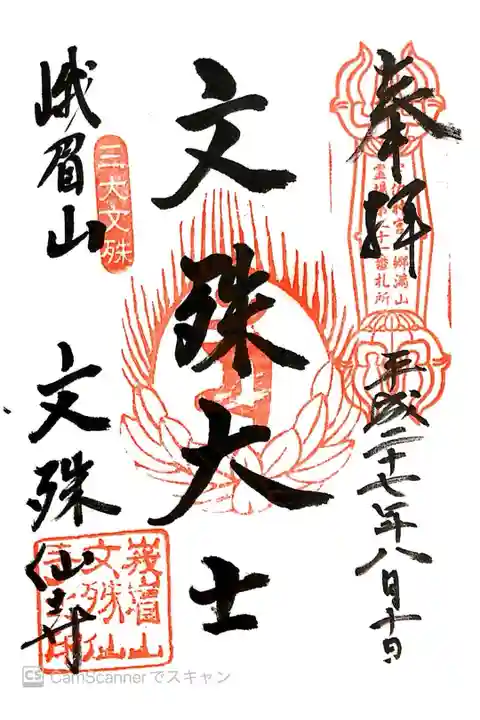 奉拝
霊場第六十一番札所
平成二十七年八月十日
文殊大士
三大文殊
峨眉山
文殊仙寺
峩嵋山
文殊仙
CS CamScannerでスキャン